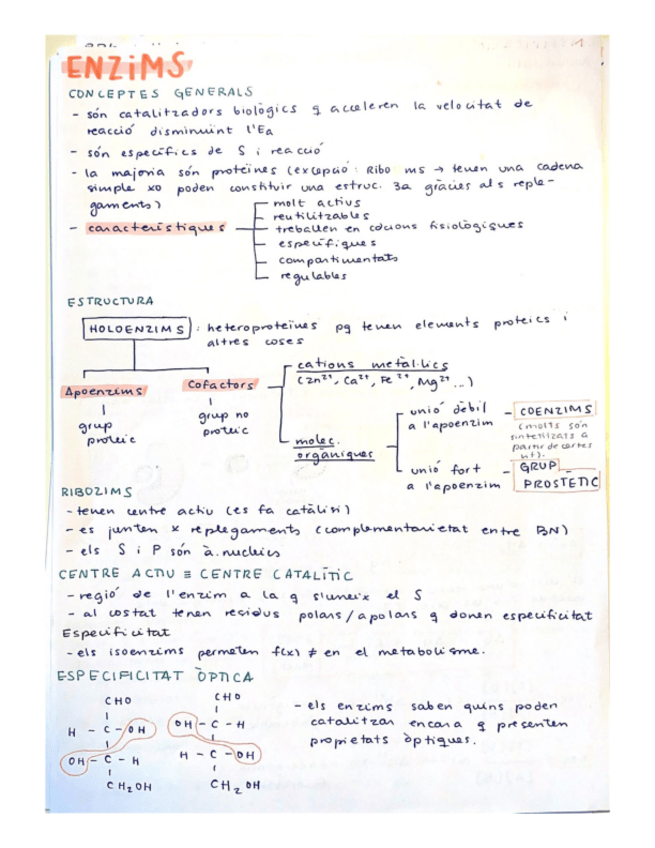 ENZiMS
CONCEPTES GENERALS
- són catalitzadors biològics q acceleren la velocitat de
reacció disminuint l'Ea
- són específics de S i reacció
- la majoria són proteïnes (excepció: Ribo ms → tenen una cadena
simple xo poden constituir una estruc. 3a gràcies als reple-
gaments)
- característiques
molt actius
reutilitzables
treballen en cdcions fisiològiques
específiques
compartimentats
regulables
ESTRUCTURA
HOLOENZIMS : heteroproteïnes pq tenen elements proteics i
altres coses
Apoenzims
grup
proteic
Cofactors
grup no
proteic
cations metal·lics
(Zn²⁺, Ca²⁺, Fe²⁺, Mg²⁺...)
molec.
orgàniques
unió dèbil
a l'apoenzim
- COENZIMS
(molts són
sintetitzats a
partir de certes
vit).
unió fort
a l'apoenzim
- GRUP
PROSTETIC
RIBOZIMS
- tenen centre actiu (es fa catàlisi)
- es junten x replegaments (complementarietat entre BN)
- els S i P són à. nucleics
CENTRE ACTIU ≡ CENTRE CATALÍTIC
- regió de l'enzim a la q s'uneix el S
- al costat tenen residus polars/apolars q donen especificitat
Especificitat
- els isoenzims permeten f(x) ≠ en el metabolisme.
ESPECIFICITAT ÒPTICA
CHO
H - C - OH
OH - C - H
CH2OH
CHO
OH - C - H
H - C - OH
CH2OH
- els enzims saben quins poden
catalitzar encara q presenten
propietats òptiques.